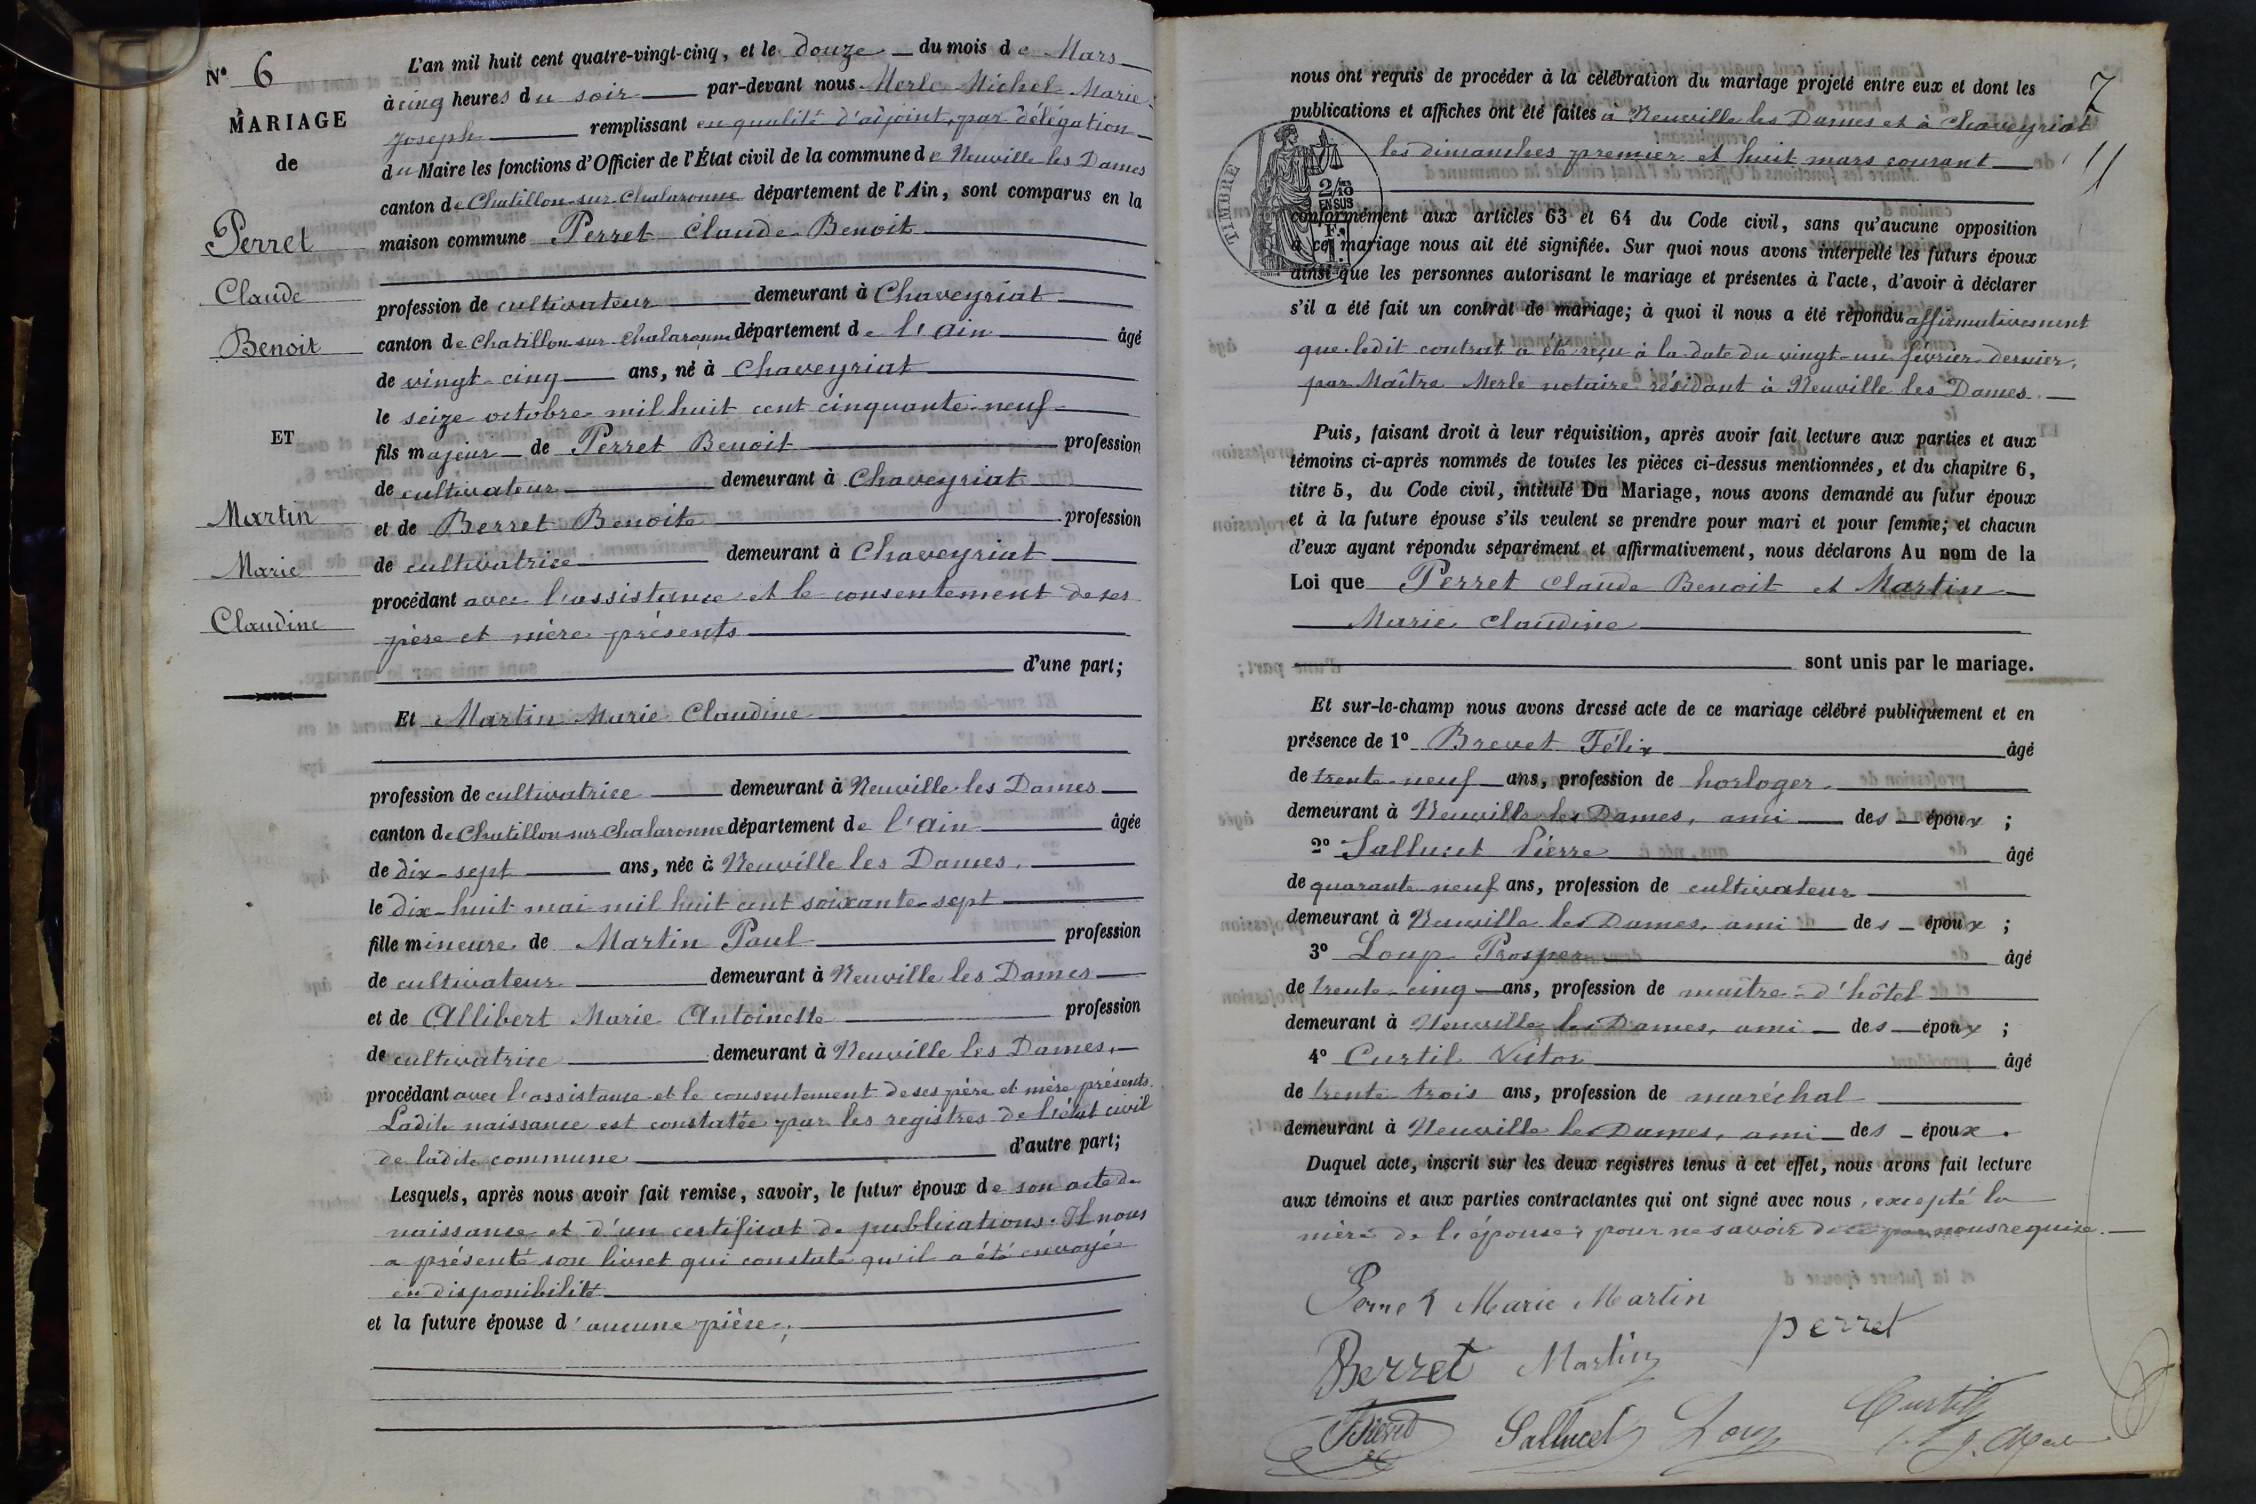 N° 6
MARIAGE
de
Perret
Claude
Benoit
ET
Martin
Marie
Claudine
L'an mil huit cent quatre-vingt-cinq, et le douze du mois de Mars
à cinq heures du soir par-devant nous Merle Michel Marie
Joseph remplissant en qualité d'adjoint, par délégation
du Maire les fonctions d'Officier de l'État civil de la commune de Neuville les Dames
canton de Chatillon-sur-Chalaronne département de l'Ain, sont comparus en la
maison commune Perret Claude Benoit
profession de cultivateur demeurant à Chaveyriat
canton de Chatillon sur Chalaronne département de l'Ain âgé
de vingt-cinq ans, né à Chaveyriat
le seize octobre mil huit cent cinquante-neuf
fils majeur de Perret Benoit profession
de cultivateur demeurant à Chaveyriat
et de Berret Benoite profession
de cultivatrice demeurant à Chaveyriat
procédant avec l'assistance et le consentement de ses
père et mère présents
d'une part;
Et Martin Marie Claudine
profession de cultivatrice demeurant à Neuville les Dames
canton de Chatillon sur Chalaronne département de l'Ain âgée
de dix-sept ans, née à Neuville les Dames,
le dix-huit mai mil huit cent soixante-sept
fille mineure de Martin Paul profession
de cultivateur demeurant à Neuville les Dames
et de Allibert Marie Antoinette profession
de cultivatrice demeurant à Neuville les Dames,
procédant avec l'assistance et le consentement de ses père et mère présents.
Ladite naissance est constatée par les registres de l'état civil
de ladite commune d'autre part;
Lesquels, après nous avoir fait remise, savoir, le futur époux de son acte de
naissance et d'un certificat de publications. Il nous
a présenté son livret qui constate qu'il a été envoyé
en disponibilité
et la future épouse d'aucune pièce;
7
11
nous ont requis de procéder à la célébration du mariage projeté entre eux et dont les
publications et affiches ont été faites à Neuville les Dames et à Chaveyriat
les dimanches premier et huit mars courant
TIMBRE
2/10
EN SUS
F.
1.
conformément aux articles 63 et 64 du Code civil, sans qu'aucune opposition
à ce mariage nous ait été signifiée. Sur quoi nous avons interpellé les futurs époux
ainsi que les personnes autorisant le mariage et présentes à l'acte, d'avoir à déclarer
s'il a été fait un contrat de mariage; à quoi il nous a été répondu affirmativement
que ledit contrat a été reçu à la date du vingt-un février dernier,
par Maître Merle notaire résidant à Neuville les Dames.
Puis, faisant droit à leur réquisition, après avoir fait lecture aux parties et aux
témoins ci-après nommés de toutes les pièces ci-dessus mentionnées, et du chapitre 6,
titre 5, du Code civil, intitulé Du Mariage, nous avons demandé au futur époux
et à la future épouse s'ils veulent se prendre pour mari et pour femme; et chacun
d'eux ayant répondu séparément et affirmativement, nous déclarons Au nom de la
Loi que Perret Claude Benoit et Martin
Marie Claudine
sont unis par le mariage.
Et sur-le-champ nous avons dressé acte de ce mariage célébré publiquement et en
présence de 1° Brevet Félix âgé
de trente-neuf ans, profession de horloger
demeurant à Neuville les Dames, ami des époux ;
2° Sallucet Pierre âgé
de quarante-neuf ans, profession de cultivateur
demeurant à Neuville les Dames, ami des époux ;
3° Loup Prosper âgé
de trente-cinq ans, profession de maître-d'hôtel
demeurant à Neuville les Dames, ami des époux ;
4° Curtil Victor âgé
de trente trois ans, profession de maréchal
demeurant à Neuville les Dames, ami des époux.
Duquel acte, inscrit sur les deux registres tenus à cet effet, nous avons fait lecture
aux témoins et aux parties contractantes qui ont signé avec nous, excepté la
mère de l'épouse, pour ne savoir de ce par nous requise.
Perret Marie Martin
perret
Berret Martin
Brevet Sallucet Loup Curtil